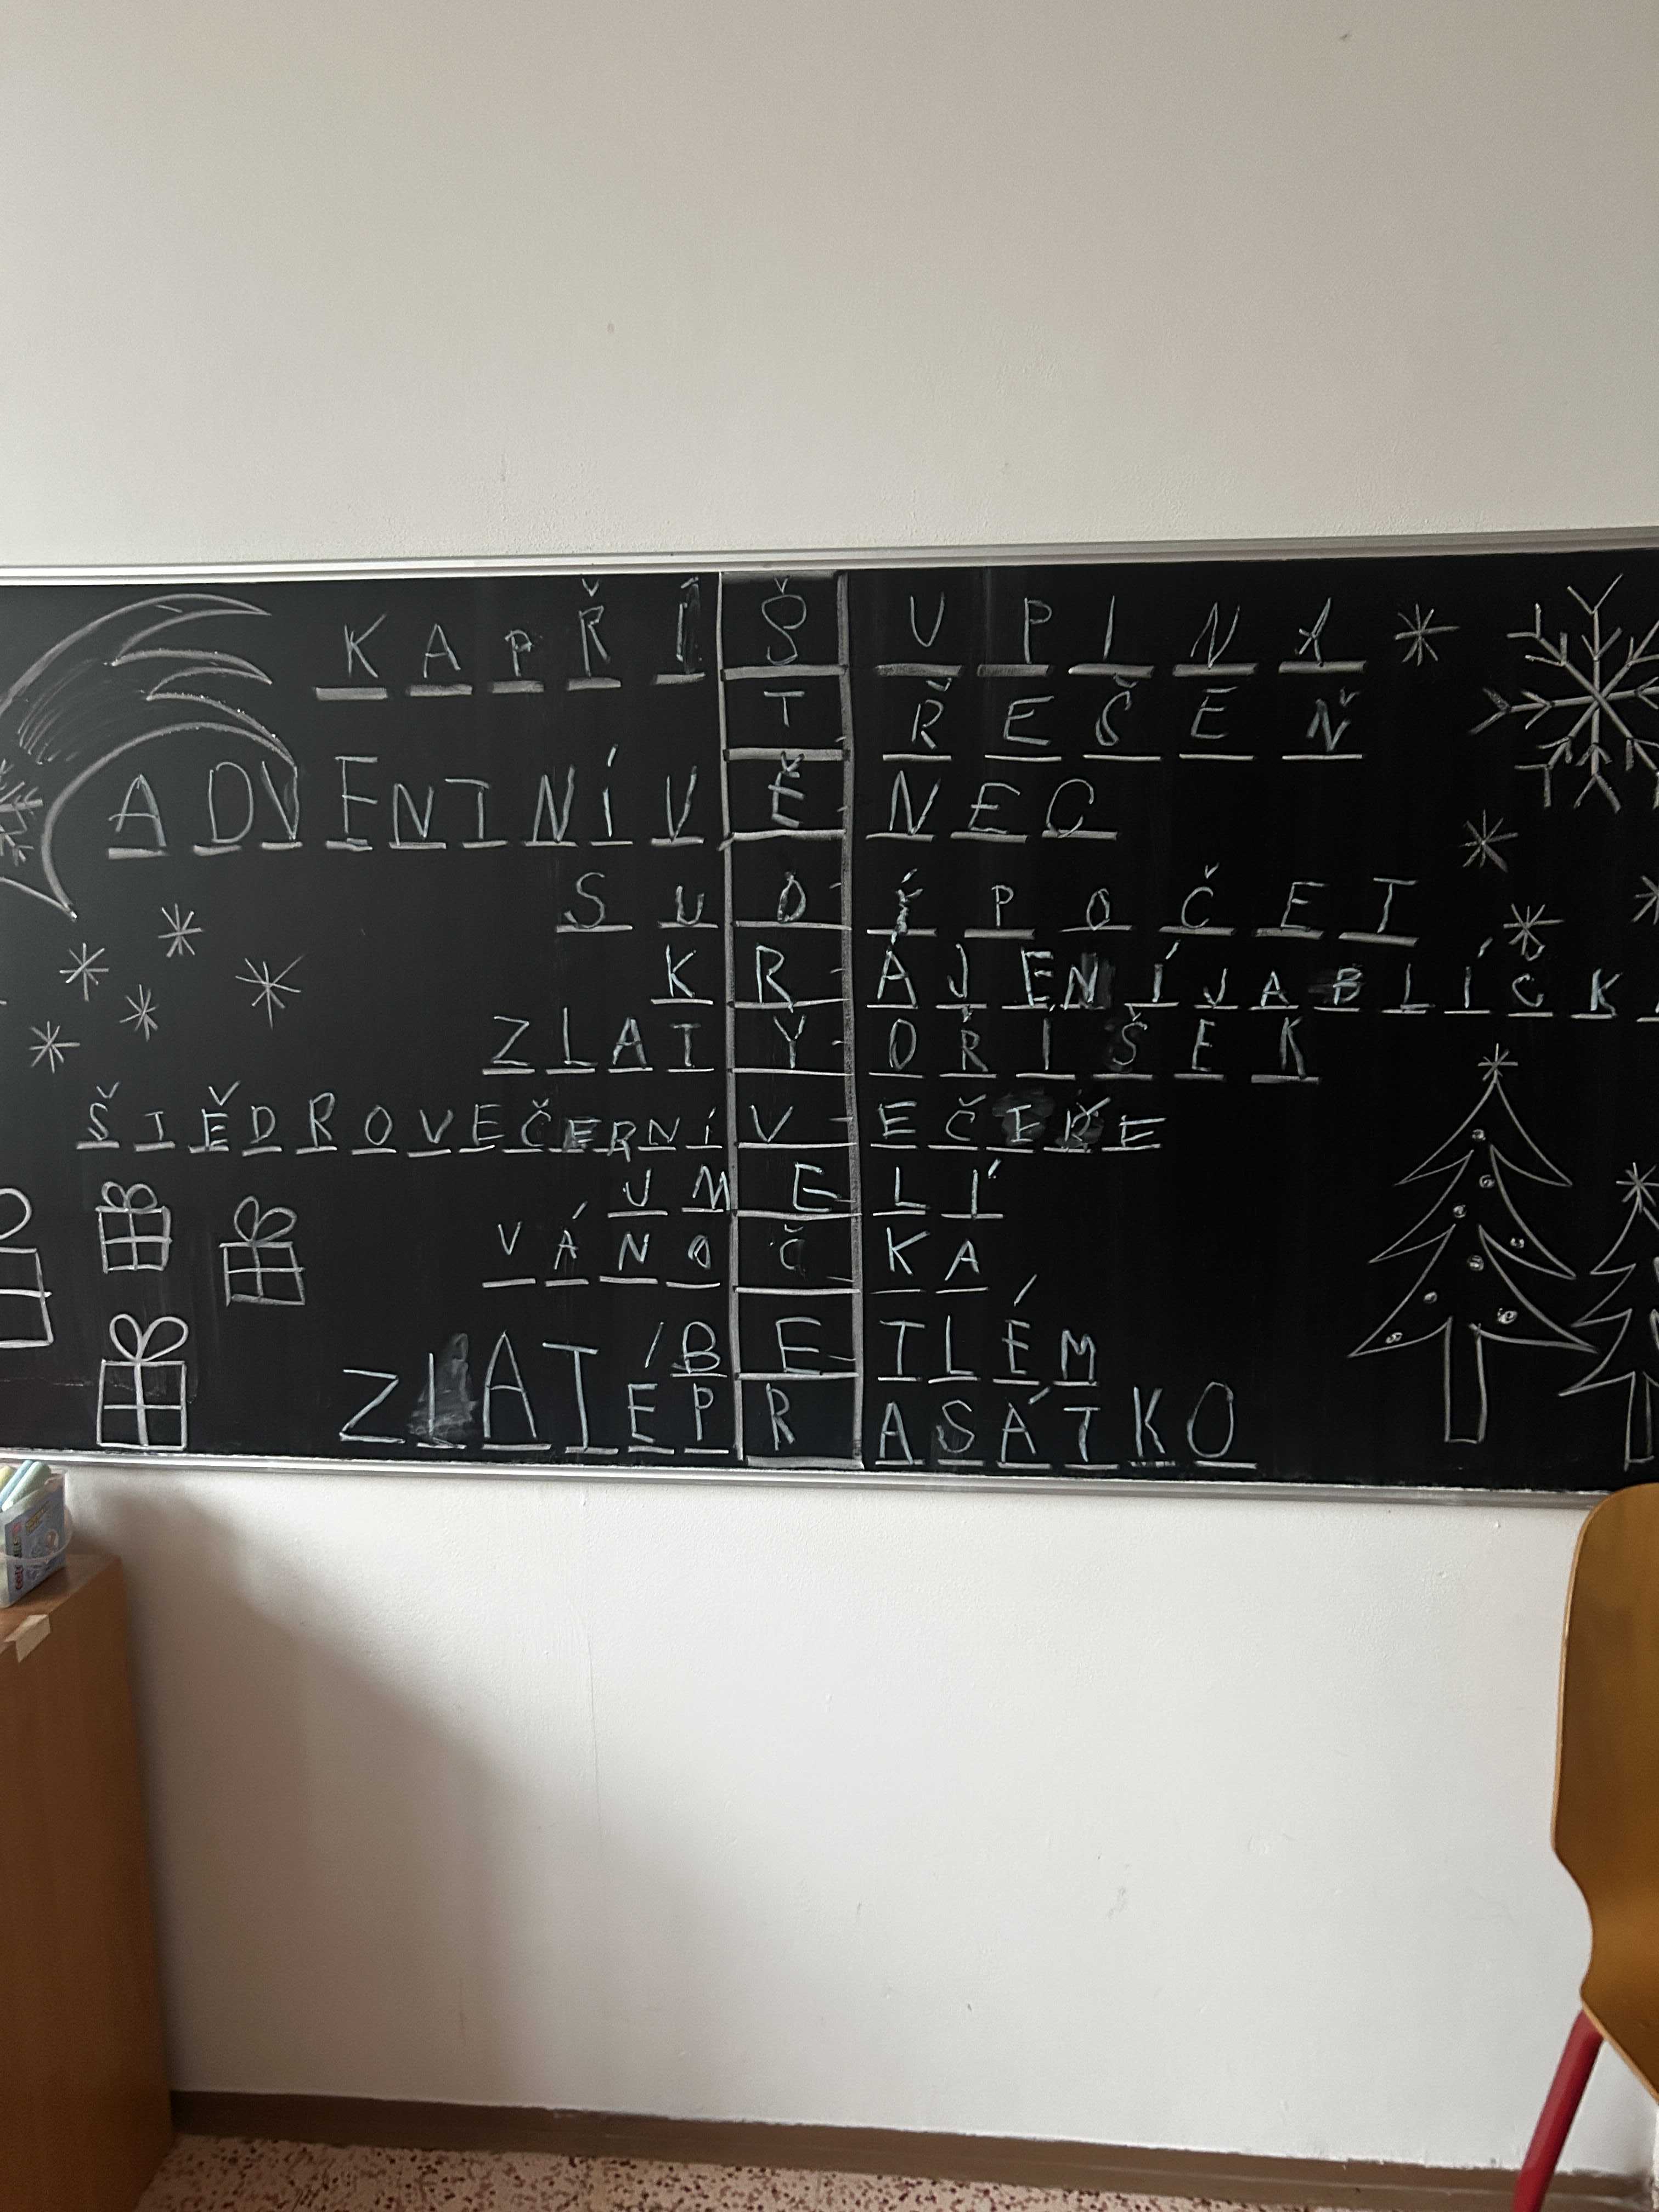 KAPŘÍŠUPINA
TŘEŠEŇ
ADVENTNÍVĚNEC
SUDÉPOČET
KRÁJENÍJABLÍČK
ZLATÝOŘÍŠEK
ŠTĚDROVEČERNÍVEČEŘE
JMELÍ
VÁNOČKA
BETLÉM
ZLATÉPRASÁTKO